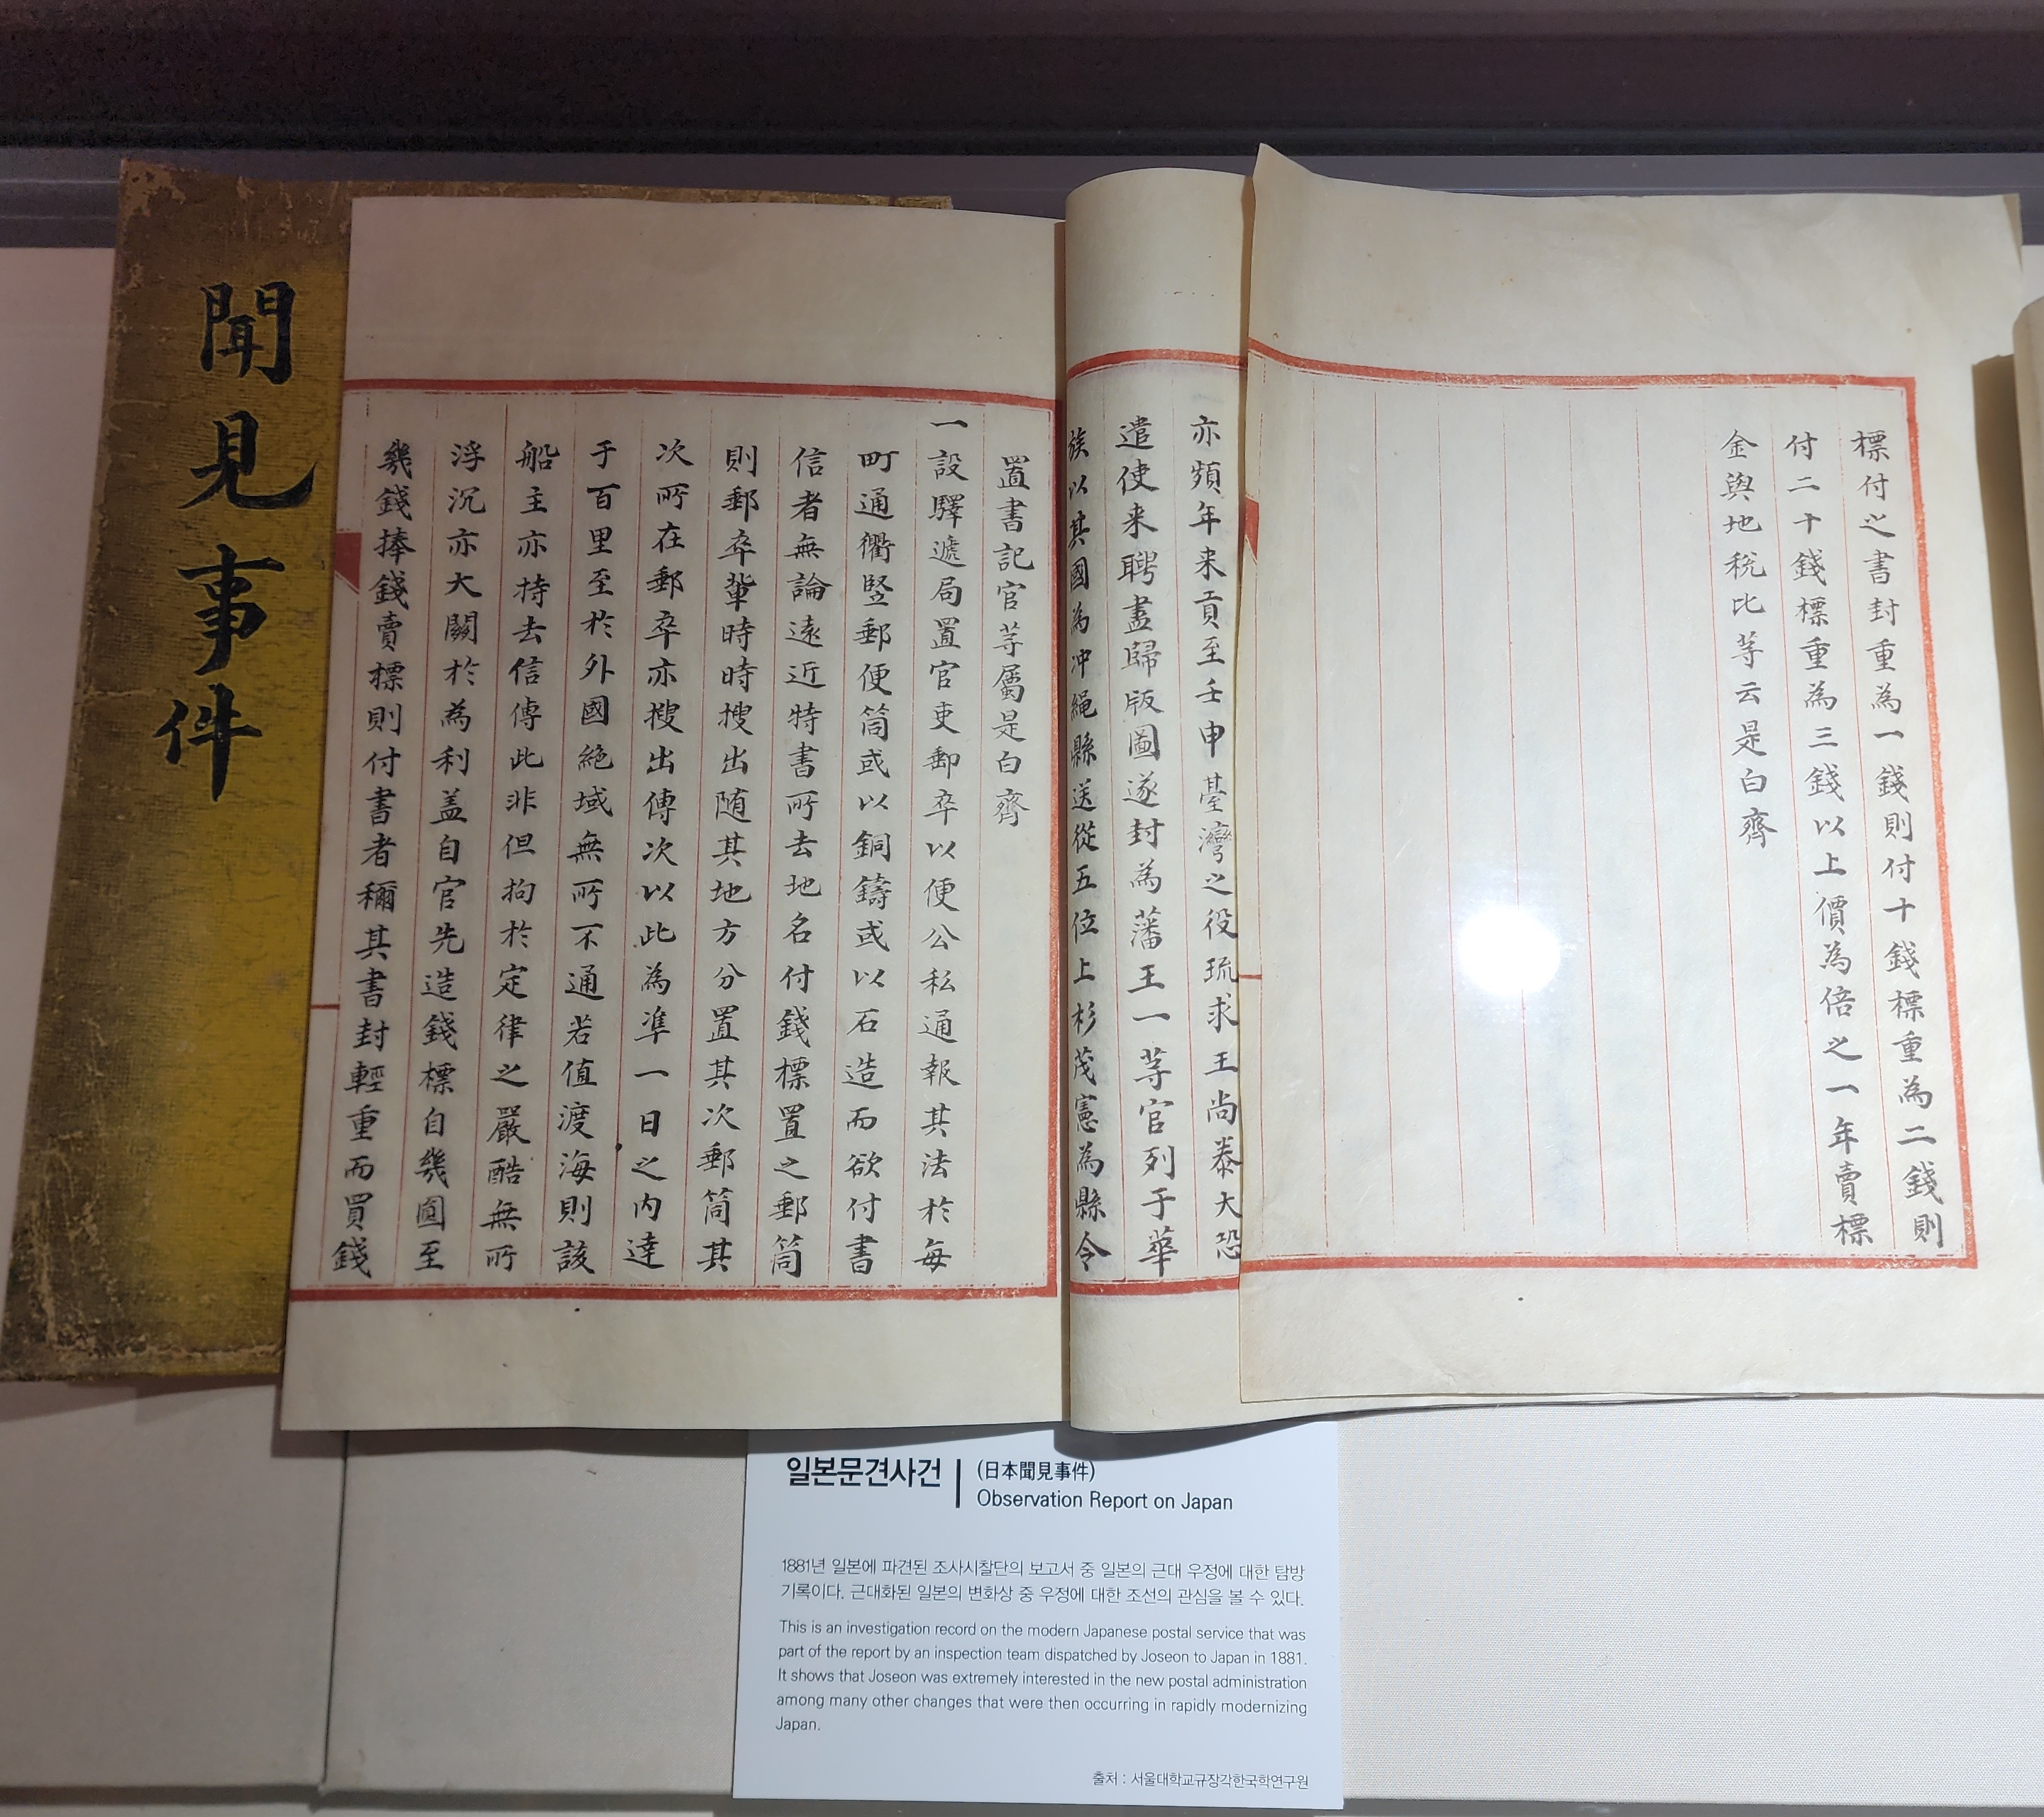 聞見事件
標付之書封重為一錢則付十錢標重為二錢則
付二十錢標重為三錢以上價為倍之一年賣標
金與地稅比等云是白齊
亦頻年来貢至壬申臺灣之役琉求王尚泰大恐
遣使来聘盡歸版圖遂封為藩王一等官列于華
族以其國為冲繩縣送從五位上杉茂憲為縣令
置書記官等屬是白齊
一設驛遞局置官吏郵卒以便公私通報其法於每
町通衢竪郵便筒或以銅鑄或以石造而欲付書
信者無論遠近特書所去地名付錢標置之郵筒
則郵卒輩時時搜出随其地方分置其次郵筒其
次所在郵卒亦搜出傳次以此為準一日之內達
于百里至於外國絕域無所不通若值渡海則該
船主亦持去信傳此非但拘於定律之嚴酷無所
浮沉亦大關於為利盖自官先造錢標自幾圓至
幾錢捧錢賣標則付書者稱其書封輕重而買錢
일본문견사건 | (日本聞見事件)
Observation Report on Japan
1881년 일본에 파견된 조사시찰단의 보고서 중 일본의 근대 우정에 대한 탐방
기록이다. 근대화된 일본의 변화상 중 우정에 대한 조선의 관심을 볼 수 있다.
This is an investigation record on the modern Japanese postal service that was
part of the report by an inspection team dispatched by Joseon to Japan in 1881.
It shows that Joseon was extremely interested in the new postal administration
among many other changes that were then occurring in rapidly modernizing
Japan.
출처 : 서울대학교규장각한국학연구원